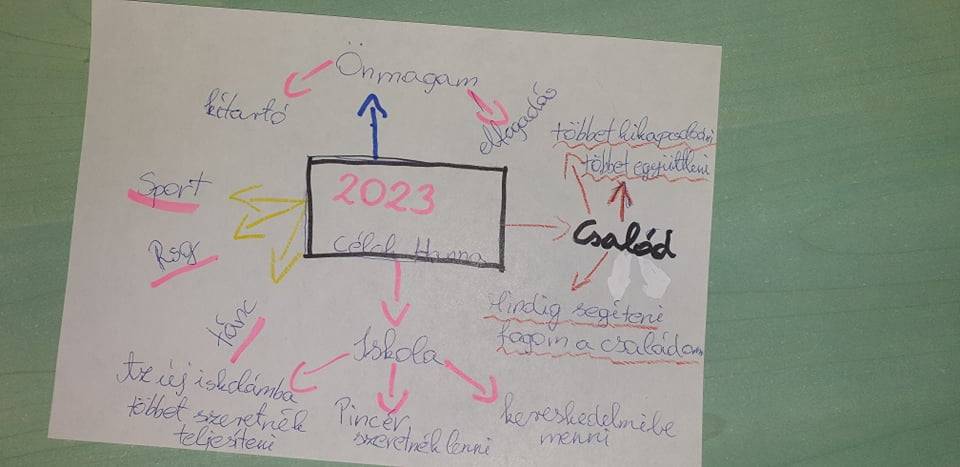 Önmagam
kitartó
elfogadás
többet kikapcsolódni
többet együttleni
Sport
2023
Célok Hanna
Család
RSG
Mindig segíteni
fogom a családom
tánc
Iskola
Az új iskolámba
többet szeretnék
teljesíteni
Pincér
szeretnék lenni
kereskedelmibe
menni